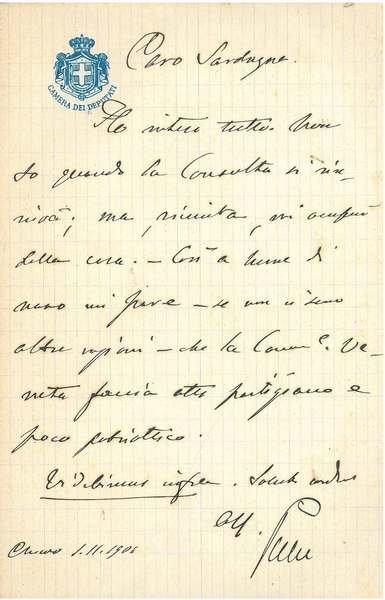 CAMERA DEI DEPUTATI
Caro Sardagna.
Ho inteso tutto. Non
so quando la Consulta si riu-
nirà; ma, riunita, mi
della cosa. – Così a
naso mi pare – se non ci sono
altre ragioni – che la Comm.e Ve-
neta faccia atto partigiano e
poco patriottico.
Videbimus infra. Saluti
aff.
1.11.1906